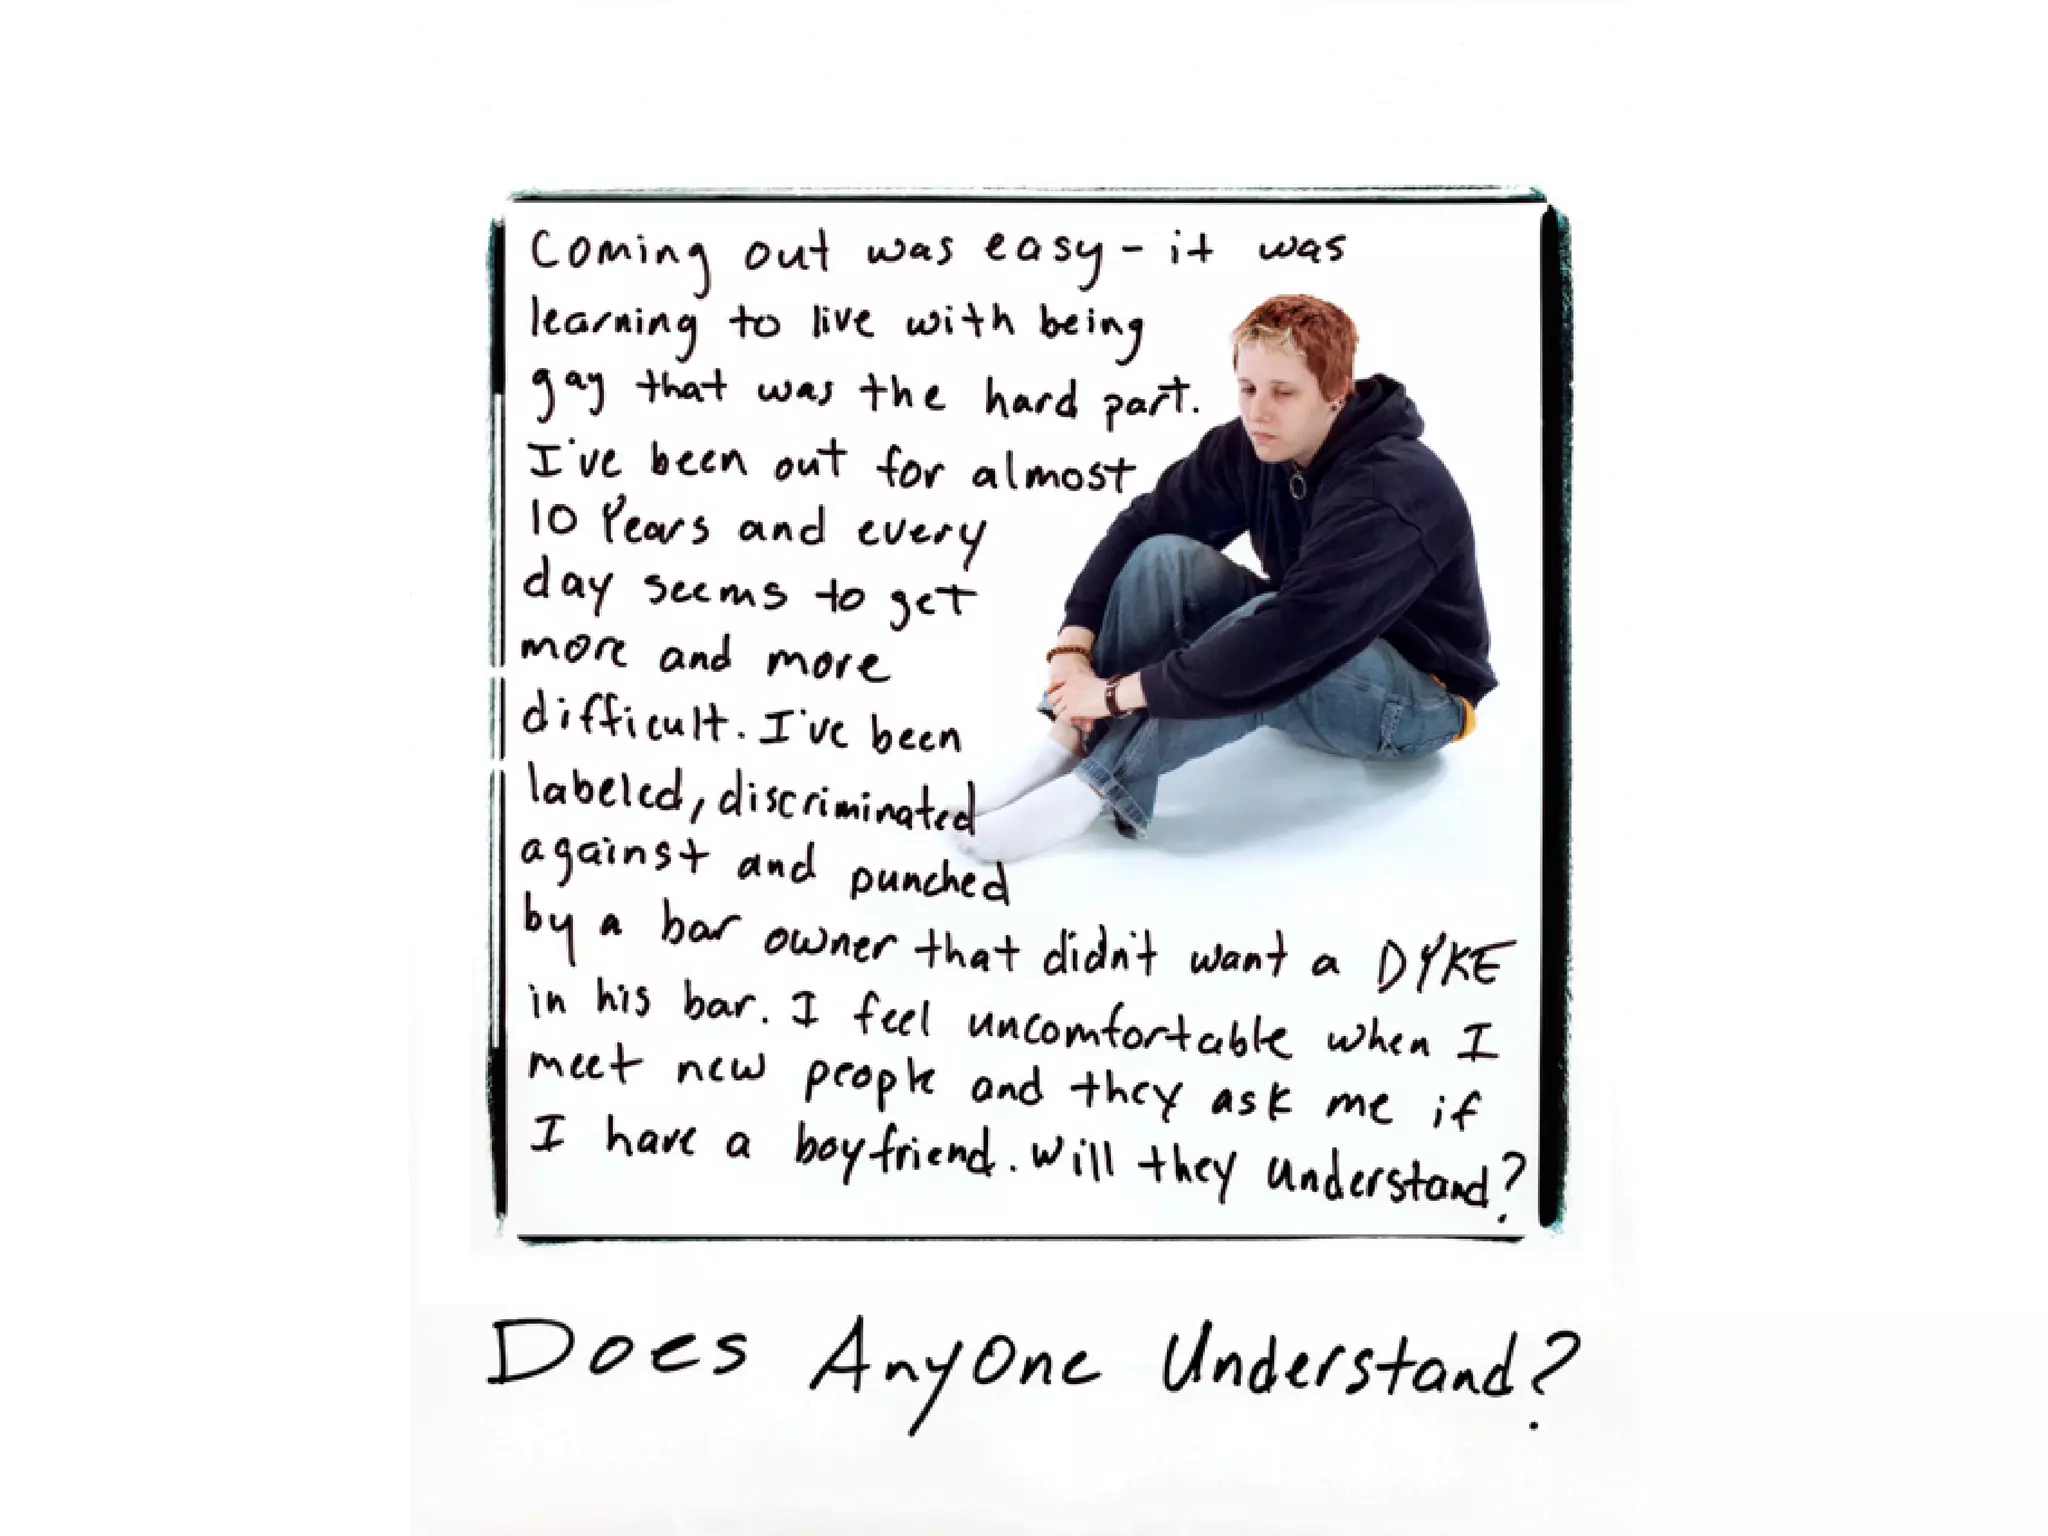 Coming out was easy - it was
learning to live with being
gay that was the hard part.
I've been out for almost
10 Years and every
day seems to get
more and more
difficult. I've been
labeled, discriminated
against and punched
by a bar owner that didn't want a DYKE
in his bar. I feel uncomfortable when I
meet new people and they ask me if
I have a boyfriend. Will they understand?
Does Anyone Understand?